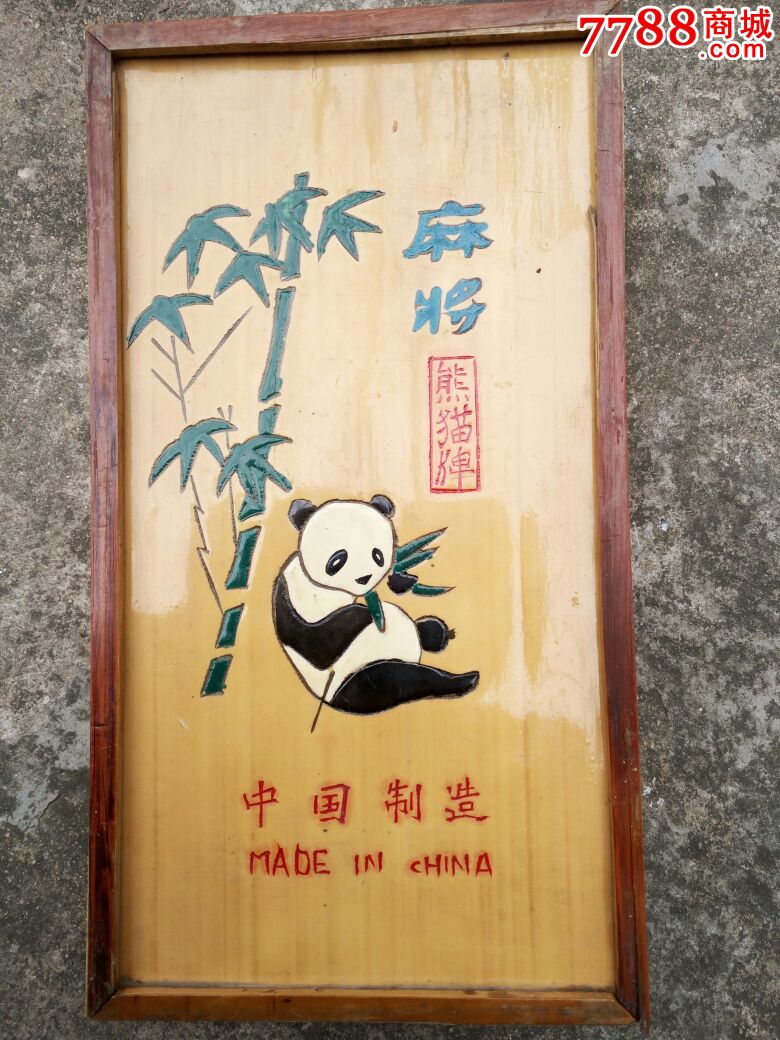 7788商城
.com
麻
将
熊
猫
牌
中国制造
MADE IN CHINA